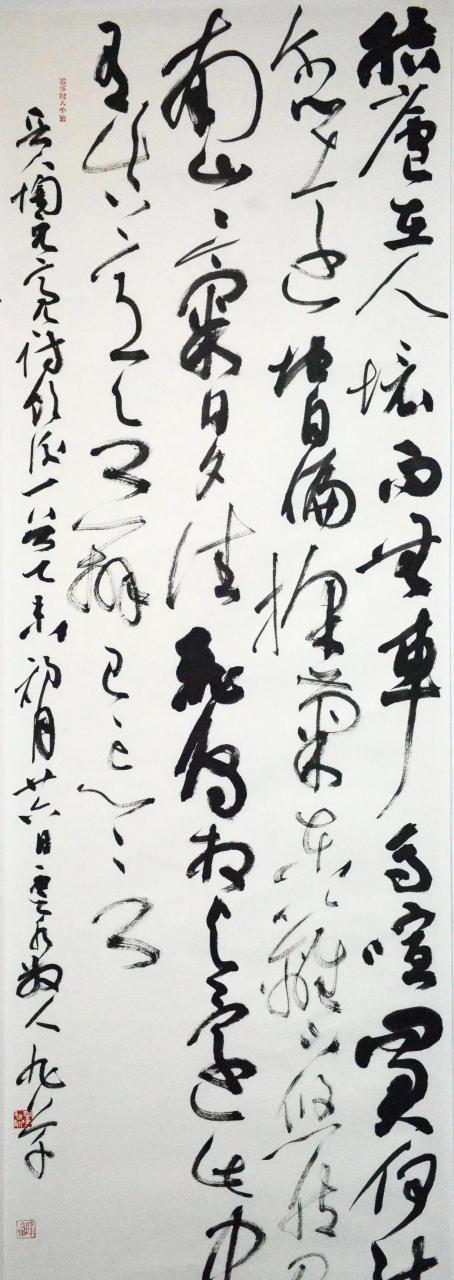 結廬在人境而無車馬喧問何能
尔心遠地自偏採菊東籬下悠然見
南山々氣日夕佳飛鳥相與還此中
有真意欲辨已忘言
晉人陶元亮詩飲酒一首乙未初月廿六日雲水散人